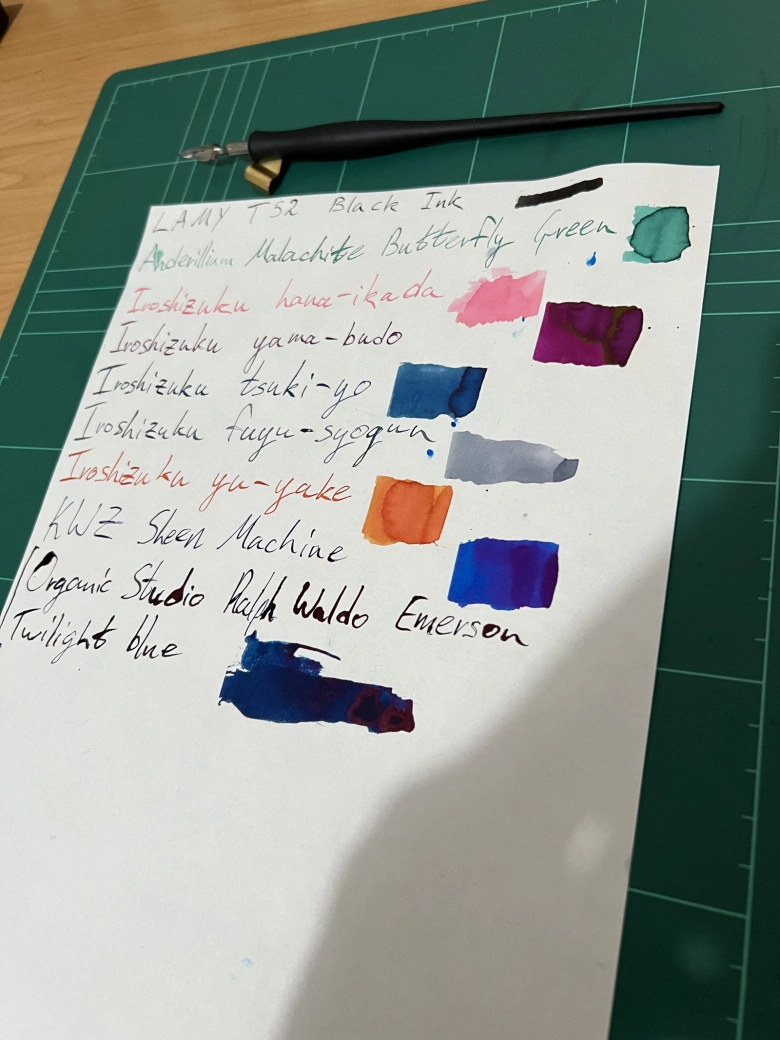 LAMY T52 Black Ink
Anderillium Malachite Butterfly Green
Iroshizuku hana-ikada
Iroshizuku yama-budo
Iroshizuku tsuki-yo
Iroshizuku fuyu-syogun
Iroshizuku yu-yake
KWZ Sheen Machine
Organic Studio Ralph Waldo Emerson
Twilight blue